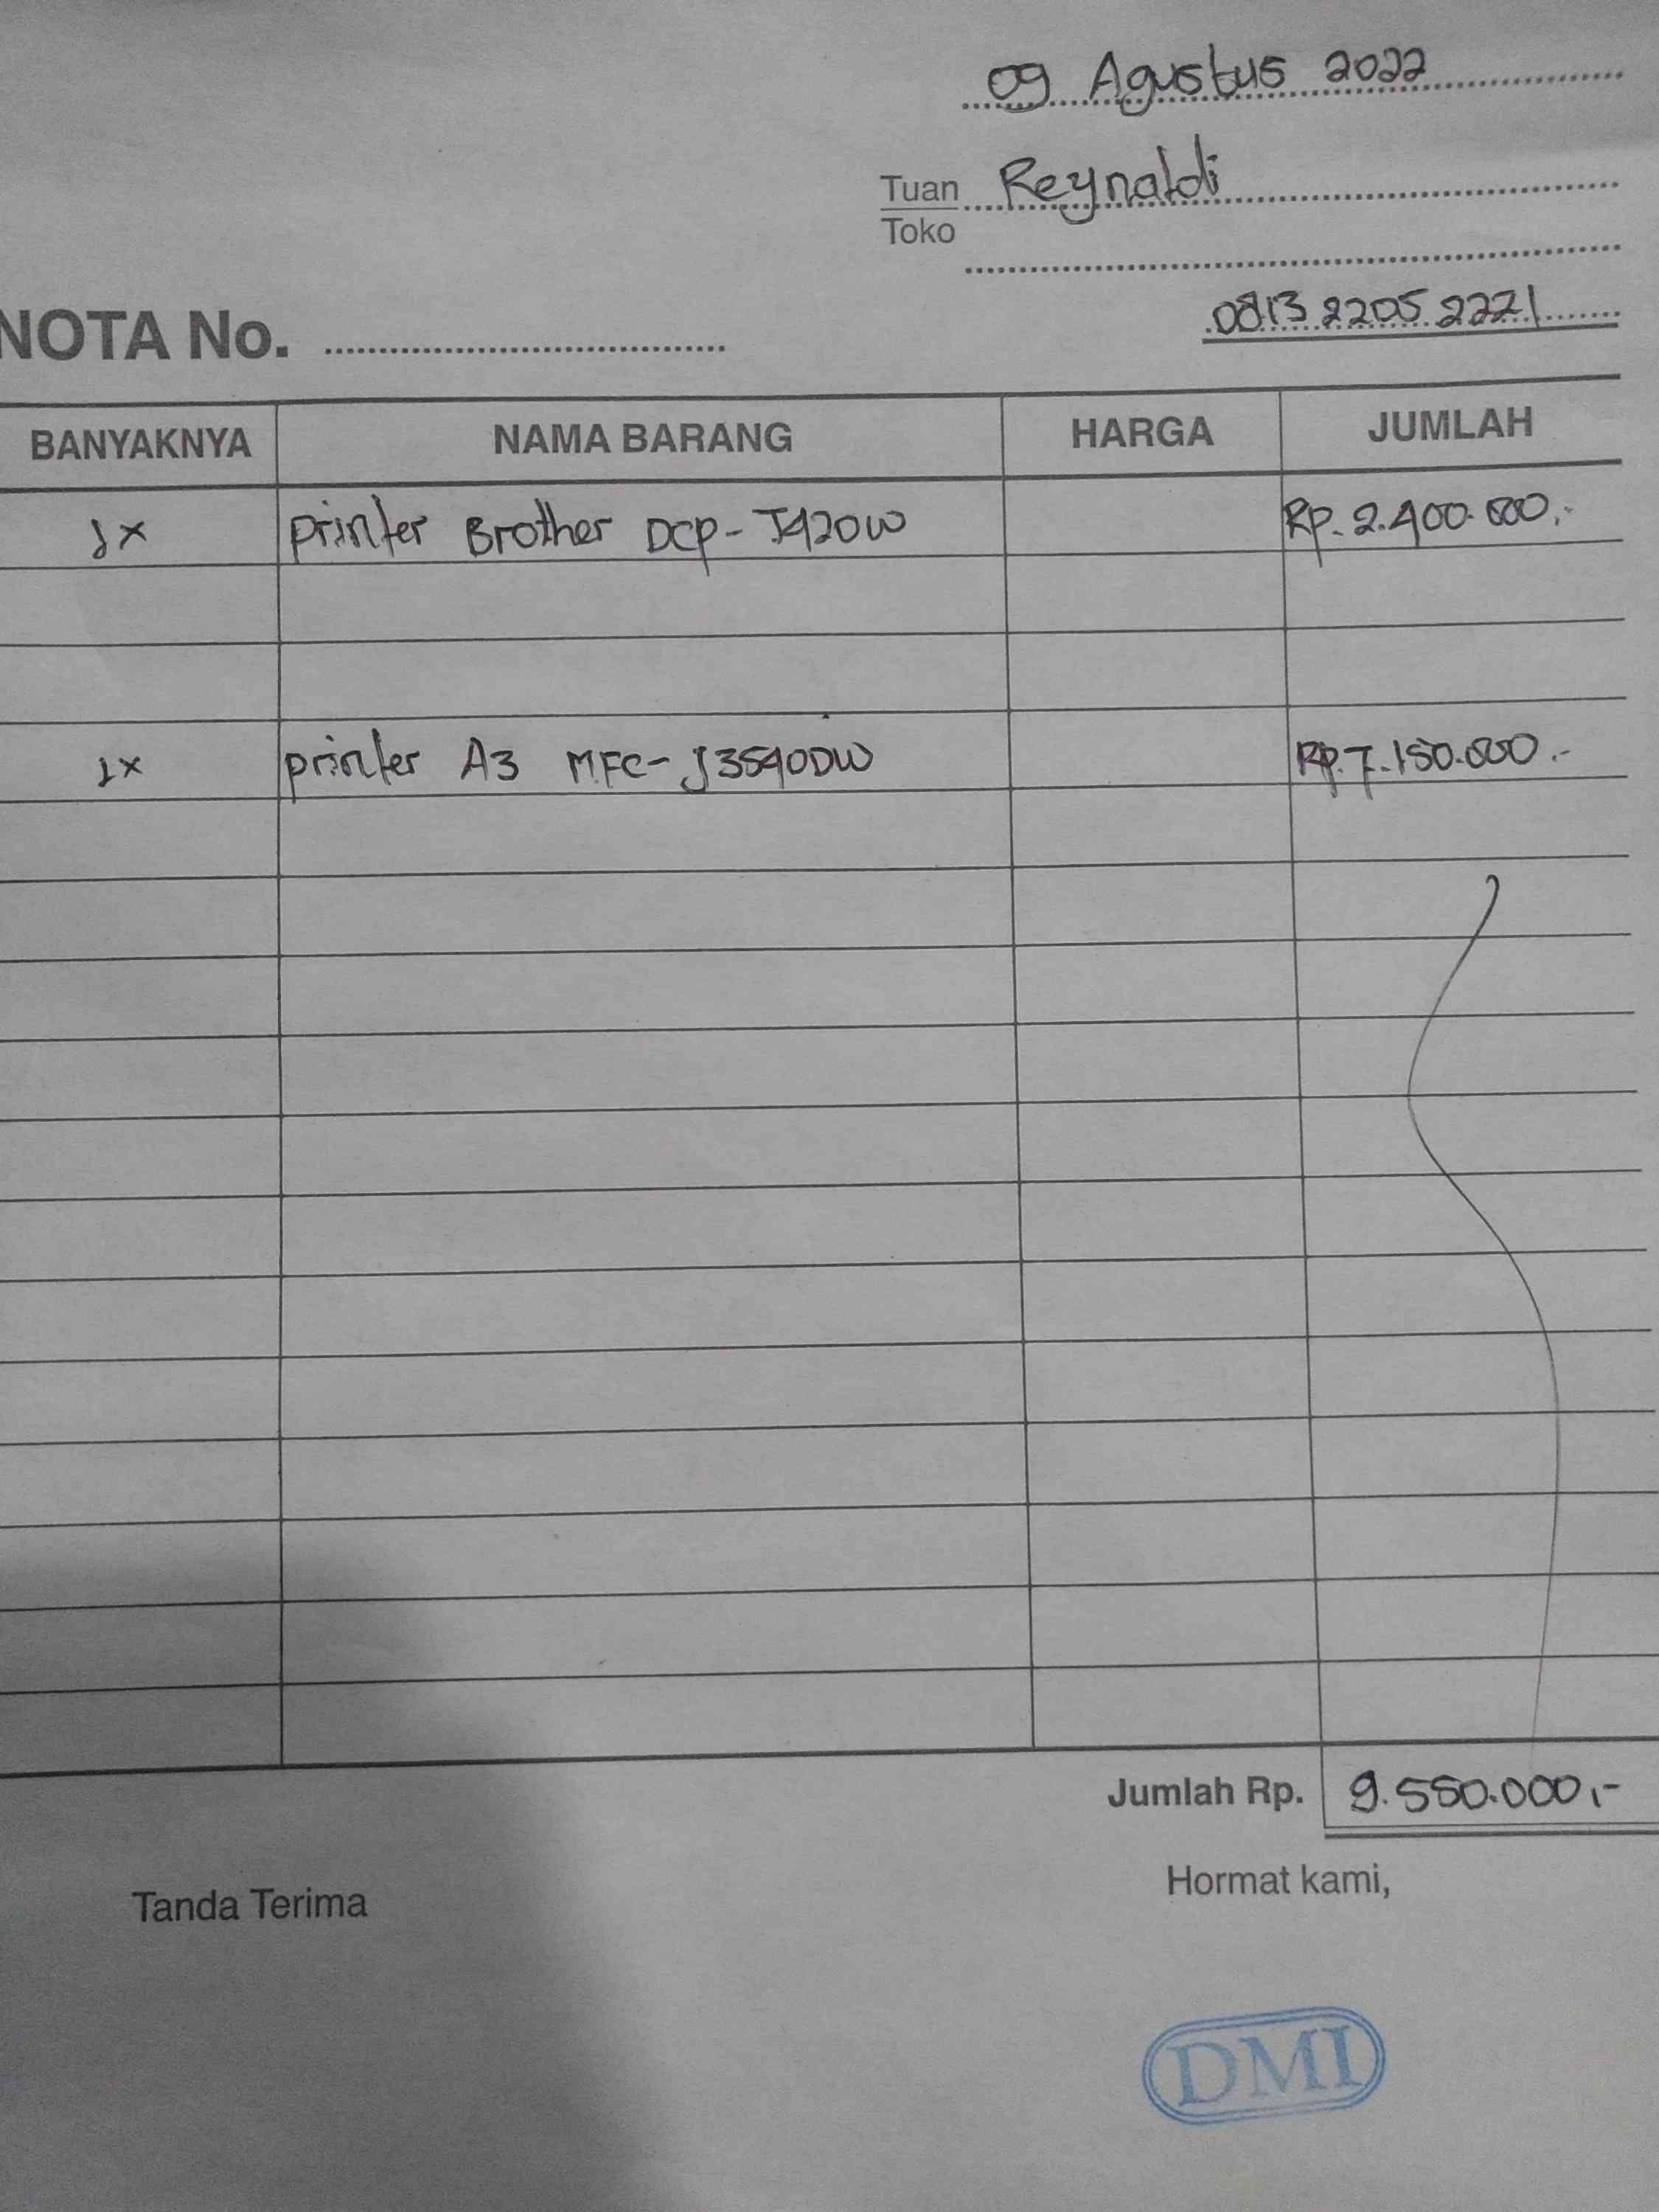 09 Agustus 2022
Tuan Reynaldi
Toko
0813 2205 2221
NOTA No.
BANYAKNYA NAMA BARANG HARGA JUMLAH
1x Printer Brother DCP-J420W Rp. 2.400.000,-
1x printer A3 MFC-J3540DW Rp. 7.150.000.-
Jumlah Rp. 9.550.000,-
Tanda Terima Hormat kami,
DMI